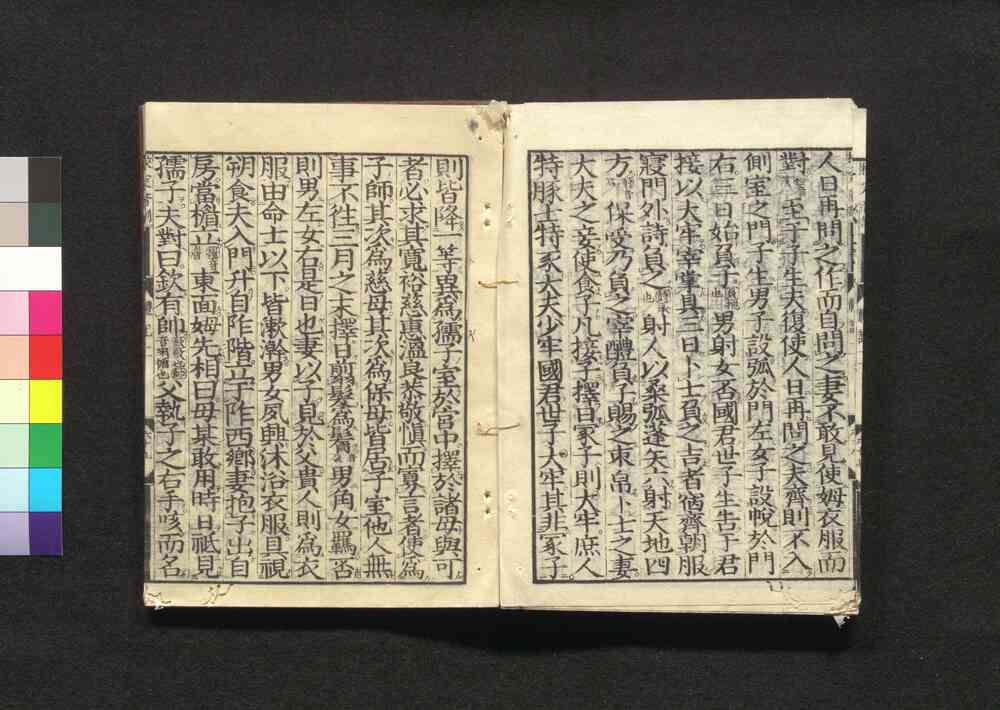 人日再問之作而自問之妻不敢見使姆衣服而
對至于子生夫復使人日再問之夫齊則不入
側室之門子生男子設弧於門左女子設帨於門
右三日始負子男射女否國君世子生告于君
接以大牢宰掌具三日卜士負之吉者宿齊朝服
寢門外詩負之射人以桑弧蓬矢六射天地四
方保受乃負之宰醴負子賜之束帛卜士之妻
大夫之妾使食子凡接子擇日冡子則大牢庶人
特豚士特豕大夫少牢國君世子大牢其非冡子
則皆降一等異爲孺子室於宮中擇於諸母與可
者必求其寬裕慈惠溫良恭敬愼而寡言者使爲
子師其次爲慈母其次爲保母皆居子室他人無
事不往三月之末擇日翦髮爲鬌男角女羈否
則男左女右是日也妻以子見於父貴人則爲衣
服由命士以下皆漱澣男女夙興沐浴衣服具視
朔食夫入門升自阼階立于阼西鄉妻抱子出自
房當楣立東面姆先相曰母某敢用時日祗見
孺子夫對曰欽有帥父執子之右手咳而名